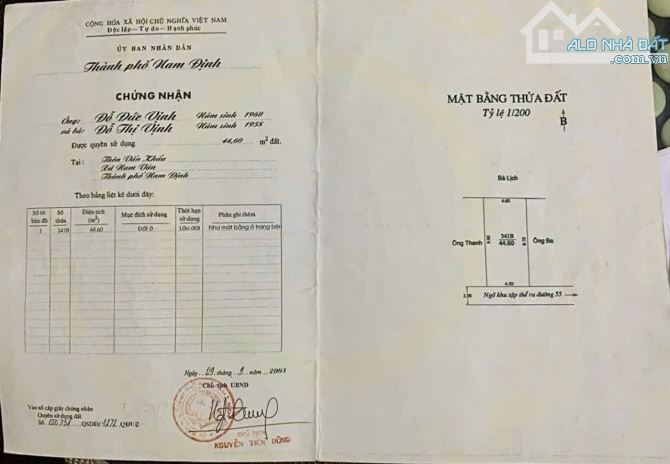 CỘNG HÒA XÃ HỘI CHỦ NGHĨA VIỆT NAM
Độc lập - Tự do - Hạnh phúc
ỦY BAN NHÂN DÂN
Thành phố Nam Định
CHỨNG NHẬN
Ông: Đỗ Đức Vịnh Năm sinh 1960
và bà: Đỗ Thị Vịnh Năm sinh 1958
Được quyền sử dụng 44,60 m² đất.
Tại: Thôn Vấn Khẩu
Xã Nam Vân
Thành phố Nam Định
Theo bảng liệt kê dưới đây:
Số tờ bản đồ Số thửa Diện tích (m²) Mục đích sử dụng Thời hạn sử dụng Phần ghi thêm
1 341B 44,60 Đất ở Lâu dài Như mặt bằng ở trang bên
Ngày 09 tháng 9 năm 2003
Chủ tịch UBND
CHỦ TỊCH
NGUYỄN TIẾN DŨNG
Vào sổ cấp giấy chứng nhận
Quyền sử dụng đất
Số QSDĐ/ QĐUB
ALO NHÀ ĐẤT
.com.vn
MẶT BẰNG THỬA ĐẤT
Tỷ lệ 1/200
B
Bà Lịch
4.60
Ông Thanh
341B
44.60
Ông Ba
4.50
2.00
Ngõ khu tập thể ra đường 55